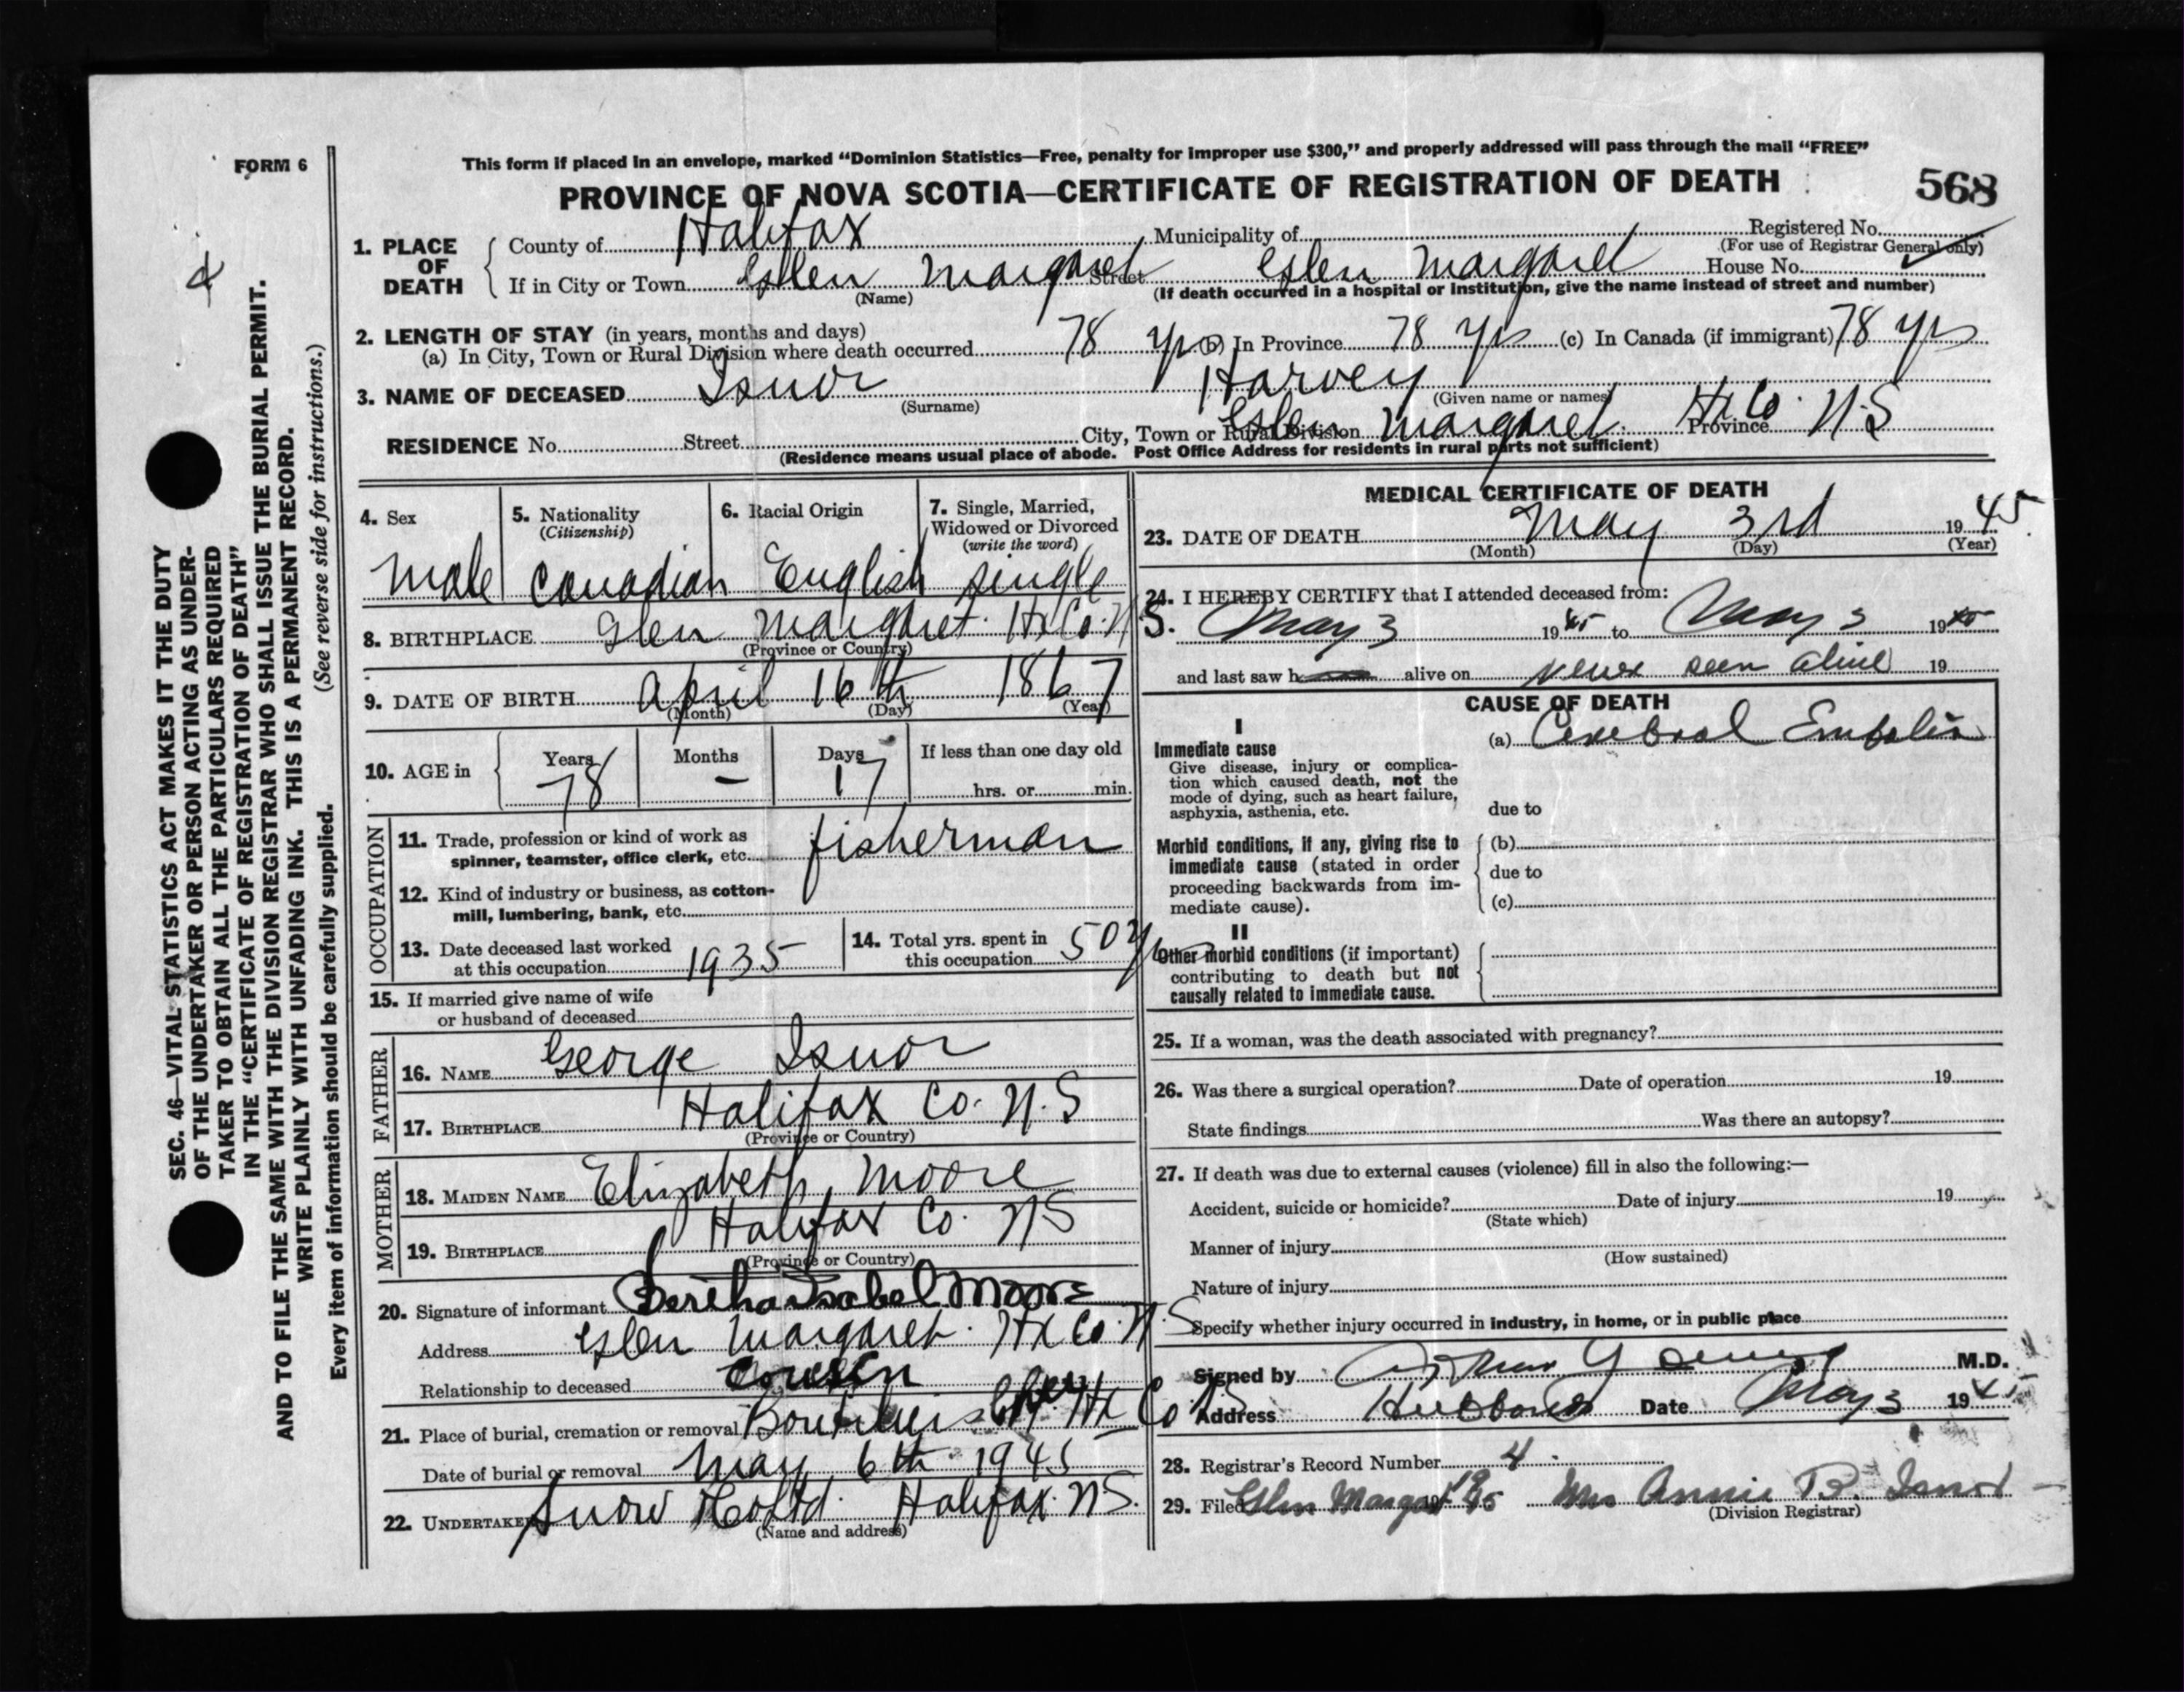 FORM 6
This form if placed in an envelope, marked “Dominion Statistics—Free, penalty for improper use $300,” and properly addressed will pass through the mail “FREE”
PROVINCE OF NOVA SCOTIA—CERTIFICATE OF REGISTRATION OF DEATH
568
1. PLACE OF DEATH
County of Halifax Municipality of Registered No.
(For use of Registrar General only)
If in City or Town Glen Margaret Street Glen Margaret House No.
(Name) (If death occurred in a hospital or institution, give the name instead of street and number)
2. LENGTH OF STAY (in years, months and days)
(a) In City, Town or Rural Division where death occurred 78 yrs (b) In Province 78 yrs (c) In Canada (if immigrant) 78 yrs
3. NAME OF DECEASED Isnor Harvey
(Surname) (Given name or names)
RESIDENCE No. Street City, Town or Rural Division Glen Margaret. Hx Co. Province N.S
(Residence means usual place of abode. Post Office Address for residents in rural parts not sufficient)
4. Sex
male
5. Nationality
(Citizenship)
Canadian
6. Racial Origin
English
7. Single, Married,
Widowed or Divorced
(write the word)
single
8. BIRTHPLACE Glen Margaret. Hx Co. N.S.
(Province or Country)
9. DATE OF BIRTH April 16th 1867
(Month) (Day) (Year)
10. AGE in Years Months Days If less than one day old
78 - 17 hrs. or min.
OCCUPATION
11. Trade, profession or kind of work as
spinner, teamster, office clerk, etc. fisherman
12. Kind of industry or business, as cotton-
mill, lumbering, bank, etc.
13. Date deceased last worked
at this occupation 1935
14. Total yrs. spent in
this occupation 50 yrs
15. If married give name of wife
or husband of deceased
FATHER
16. NAME George Isnor
17. BIRTHPLACE Halifax Co. N.S
(Province or Country)
MOTHER
18. MAIDEN NAME Elizabeth Moore
19. BIRTHPLACE Halifax Co. NS
(Province or Country)
20. Signature of informant Bertha Isabel Moore
Address Glen Margaret. Hx Co. N.S
Relationship to deceased cousin
21. Place of burial, cremation or removal Hx Co
Date of burial or removal May 6th 1945
22. UNDERTAKER Snow & Co Ltd. Halifax. NS.
(Name and address)
MEDICAL CERTIFICATE OF DEATH
23. DATE OF DEATH May 3rd 1945
(Month) (Day) (Year)
24. I HEREBY CERTIFY that I attended deceased from:
May 3 1945 to May 3 1945
and last saw h alive on never seen alive 19
CAUSE OF DEATH
I
Immediate cause
Give disease, injury or complica-
tion which caused death, not the
mode of dying, such as heart failure,
asphyxia, asthenia, etc.
(a) Cerebral
due to
Morbid conditions, if any, giving rise to
immediate cause (stated in order
proceeding backwards from im-
mediate cause).
(b)
due to
(c)
II
Other morbid conditions (if important)
contributing to death but not
causally related to immediate cause.
25. If a woman, was the death associated with pregnancy?
26. Was there a surgical operation? Date of operation 19
State findings Was there an autopsy?
27. If death was due to external causes (violence) fill in also the following:—
Accident, suicide or homicide? Date of injury 19
(State which)
Manner of injury
(How sustained)
Nature of injury
Specify whether injury occurred in industry, in home, or in public place
Signed by M.D.
Address Hubbards Date May 3 1945
28. Registrar's Record Number 4
29. Filed Glen Margaret 1945 Mrs Annie B. Isnor
(Division Registrar)
SEC. 46—VITAL STATISTICS ACT MAKES IT THE DUTY
OF THE UNDERTAKER OR PERSON ACTING AS UNDER-
TAKER TO OBTAIN ALL THE PARTICULARS REQUIRED
IN THE “CERTIFICATE OF REGISTRATION OF DEATH”
AND TO FILE THE SAME WITH THE DIVISION REGISTRAR WHO SHALL ISSUE THE BURIAL PERMIT.
WRITE PLAINLY WITH UNFADING INK. THIS IS A PERMANENT RECORD.
(See reverse side for instructions.)
Every item of information should be carefully supplied.